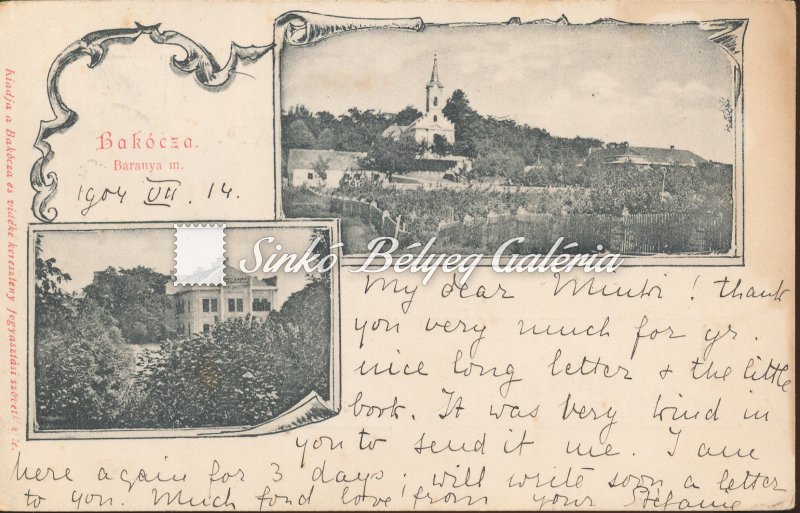 Bakócza.
Baranya m.
1904 VII. 14.
Kiadja a Bakócza és vidéke keresztény fogyasztási szövet
Sinkó Bélyeg Galéria
My dear! thank
you very much for yr.
nice long letter & the little
book. It was very kind in
you to send it me. I am
here again for 3 days; will write soon a letter
to you. Much fond love! from your Stefanie